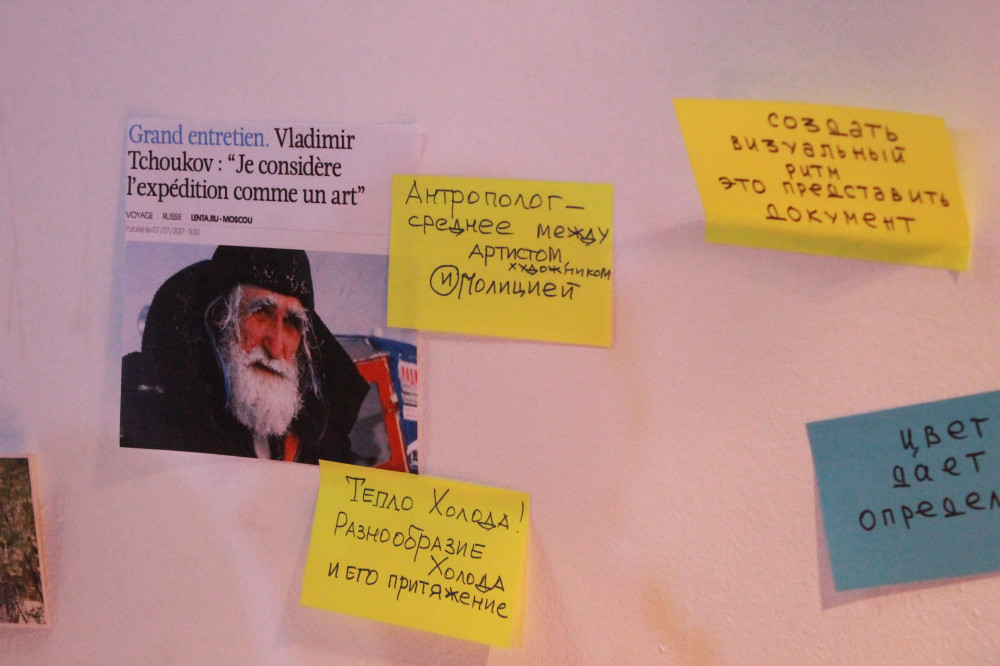 Grand entretien. Vladimir
Tchoukov : “Je considère
l’expédition comme un art”
VOYAGE RUSSIE LENTA.RU - MOSCOU
Publié le 07/07/2017 - 11:30
Антрополог –
среднее между
артистом
художником
и молицией
создать
визуальный
ритм
это представить
документ
Тепло Холода!
Разнообразие
Холода
и его притяжение
цвет
дает
определ